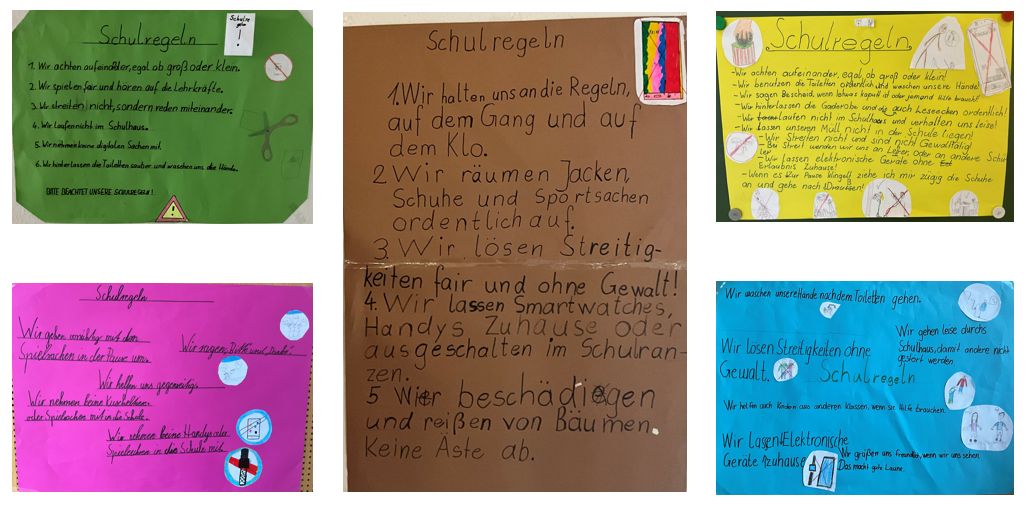 Schulregeln
Schulre
geln
!
1. Wir achten aufeinander, egal ob groß oder klein.
2. Wir spielen fair und hören auf die Lehrkräfte.
3. Wir streiten nicht, sondern reden miteinander.
4. Wir laufen nicht im Schulhaus.
5. Wir nehmen keine digitalen Sachen mit.
6. Wir hinterlassen die Toiletten sauber und waschen uns die Hände.
BITE BEACHTET UNSERE SCHULREGELN!
Schulregeln
1. Wir halten uns an die Regeln,
auf dem Gang und auf
dem Klo.
2 Wir räumen Jacken,
Schuhe und Sportsachen
ordentlich auf.
3. Wir lösen Streitig-
keiten fair und ohne Gewalt!
4. Wir lassen Smartwatches,
Handys Zuhause oder
ausgeschalten im Schulran-
zen.
5 Wier beschädiegen
und reißen von Bäumen
keine Äste ab.
Schulregeln
-Wir achten aufeinander, egal ob groß oder klein!
-Wir benutzen die Toiletten ordentlich und waschen unsere Hände
-Wir sagen Bescheid, wenn etwas kaputt ist oder jemand Hilfe braucht!
-Wir hinterlassen die Gaderobe und die auch Leseecken ordentlich!
-Wir laufen nicht im Schulhaus und verhalten uns leise!
-Wir lassen unseren Müll nicht in der Schule liegen!
-Wir Streiten nicht und sind nicht Gewalttätig!
-Bei Streit wenden wir uns an Lehrer, oder an andere Schü
ler
-Wir lassen elektronische Geräte ohne
Erlaubnis Zuhause!
-Wenn es zur Pause klingelt ziehe ich mir zügig die Schuhe
an und gehe nach Draußen!
Schulregeln
Wir gehen vorsichtig mit den
Spielsachen in der Pause um.
Wir sagen „Bitte und „Danke".
Wir helfen uns gegenseitig.
Wir nehmen keine Kuscheltiere
oder Spielsachen mit in die Schule.
Wir nehmen keine Handys oder
Spielsachen in die Schule mit
Wir waschen unsere Hände nach dem Toiletten gehen.
Wir gehen leise durchs
Schulhaus, damit andere nicht
gestört werden.
Wir lösen Streitigkeiten ohne
Gewalt.
Schulregeln
Wir helfen auch Kindern aus anderen Klassen, wenn sie Hilfe brauchen.
Wir lassen Elektronische
Geräte zuhause
Wir grüßen uns freundlich, wenn wir uns sehen.
Das macht gute Laune.